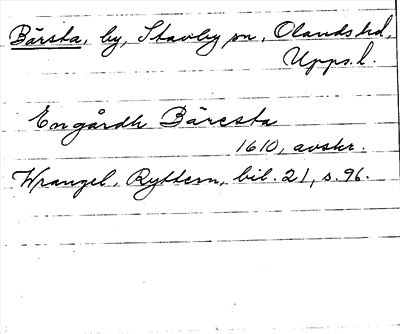 Bärsta, by, Stavby sn, Olands hd,
Upps. l.
Engårdh Bäresta
1610, avskr.
Wrangel, Ryttern, bil. 21, s. 96.